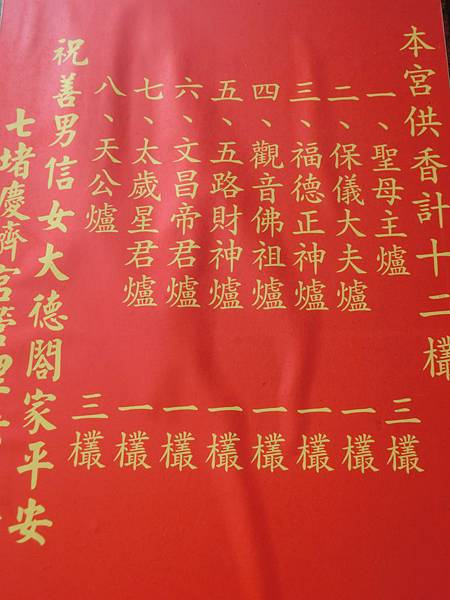 本宮供香計十二欉
一、聖母主爐 三欉
二、保儀大夫爐 一欉
三、福德正神爐 一欉
四、觀音佛祖爐 一欉
五、五路財神爐 一欉
六、文昌帝君爐 一欉
七、太歲星君爐 一欉
八、天公爐 三欉
祝善男信女大德閤家平安
七堵慶濟宮管理